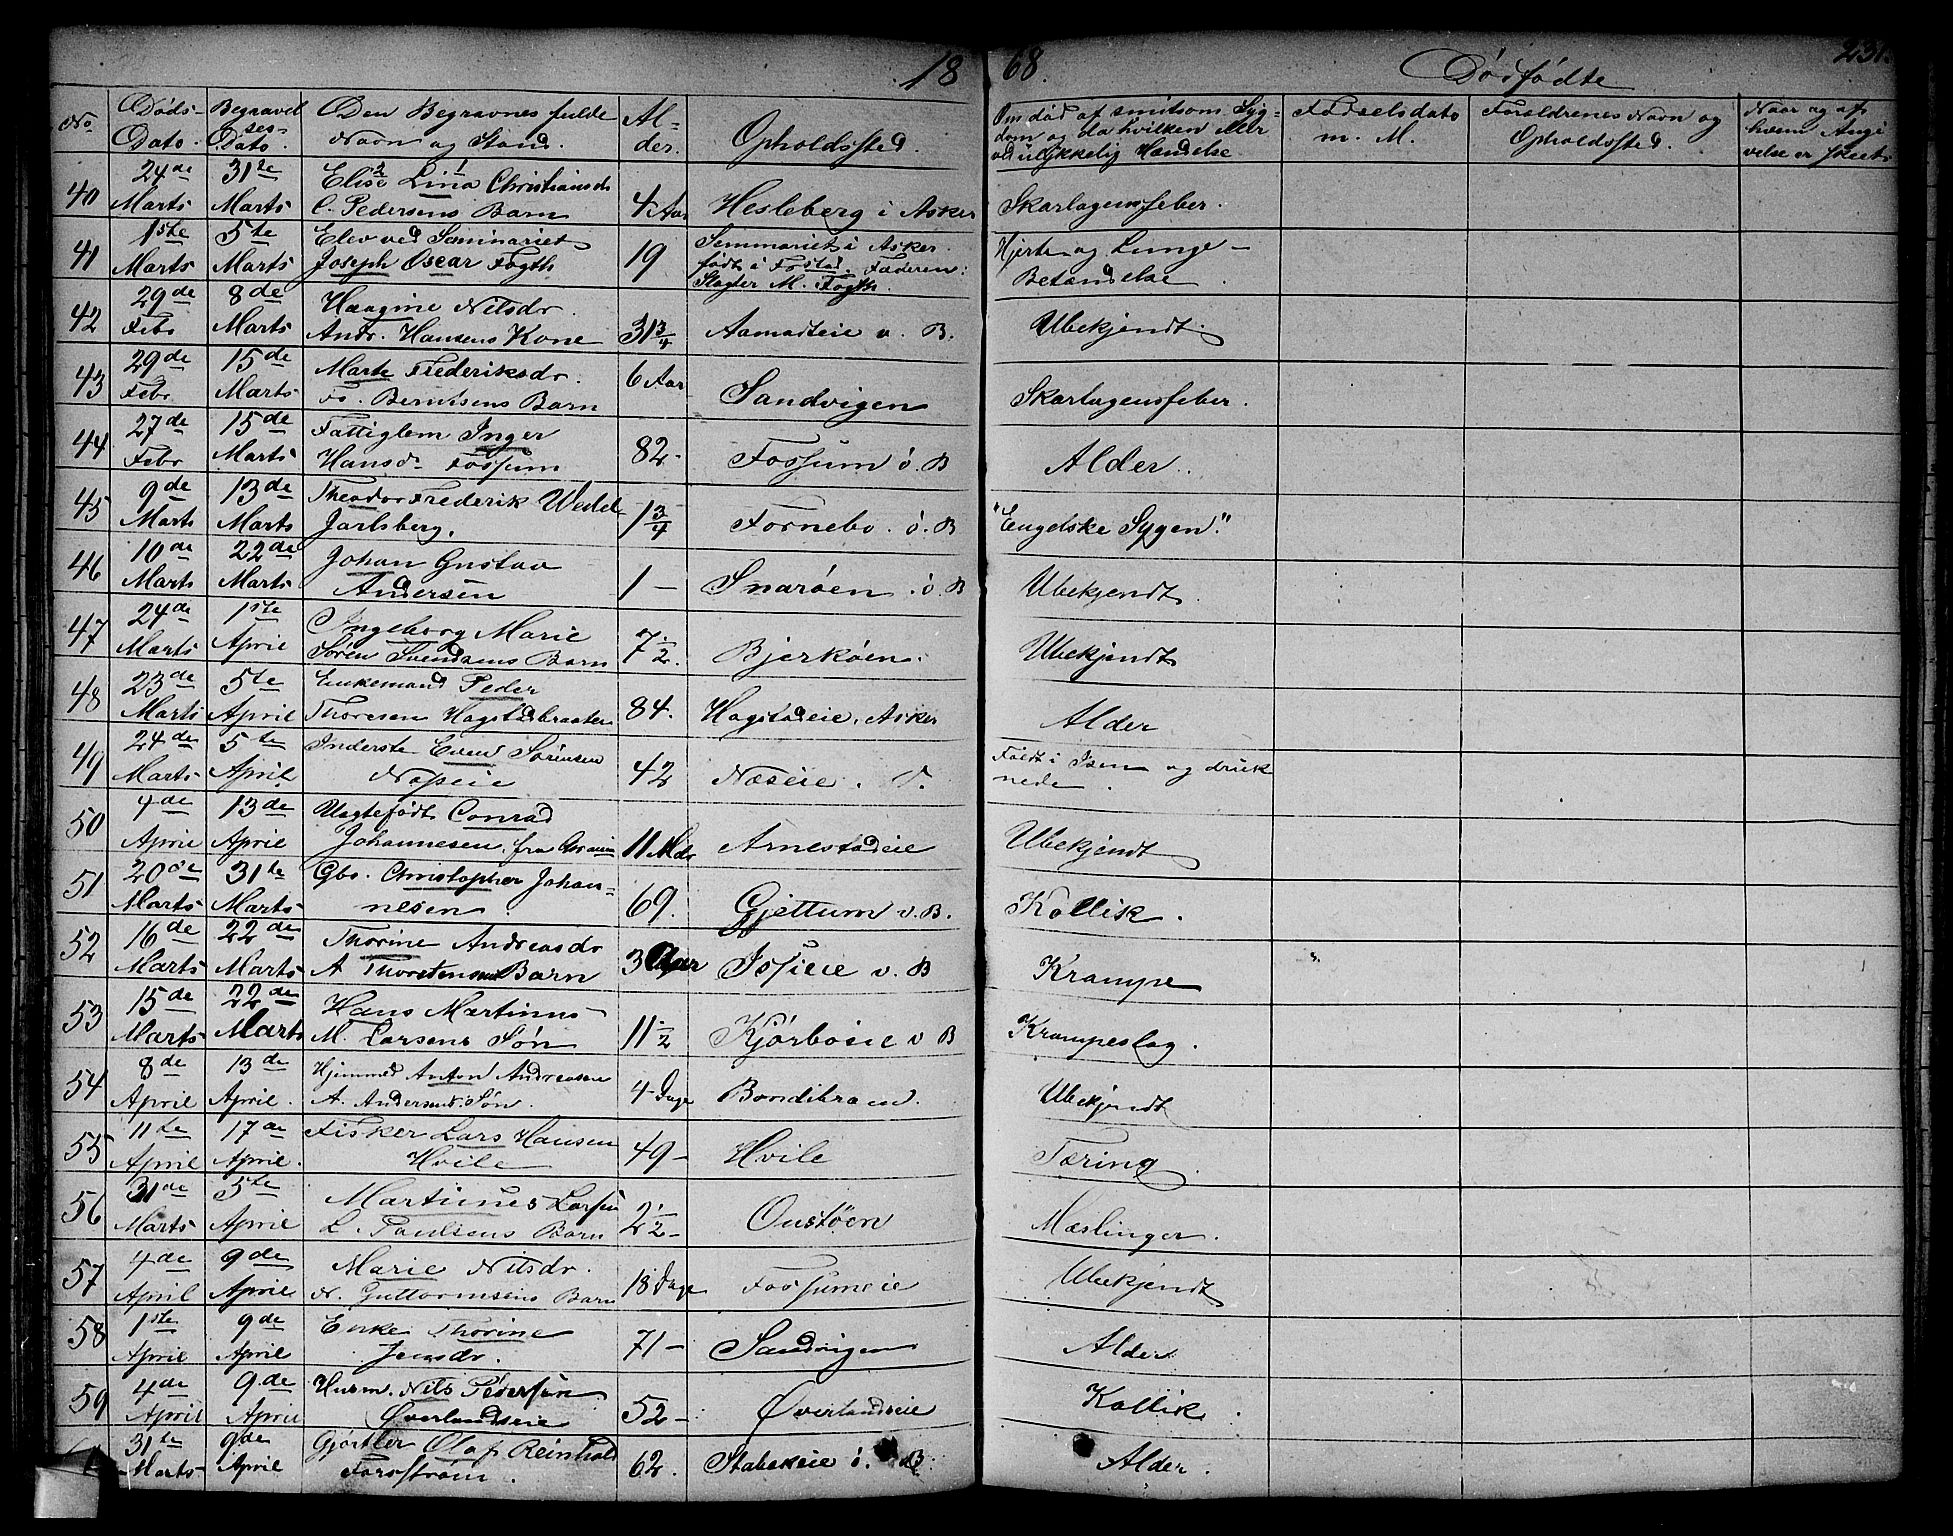 18 68. Dödfödte 231.
No Døds-Dato. Begravelses-Dato. Den Begravnes fulde Navn og Stand. Alder. Opholdssted. Om død af smitsom Sygdom og da hvilken eller ved ulykkelig Hændelse. Fødselsdato m. M. Forældrenes Navn og Opholdssted. Naar og af hvem Angivelse er skeet.
40 24de Marts 31te Marts Elise 2 Lina 1 Christiansdr
C. Pedersens Barn 4 Aar Hesleberg i Asker Skarlagensfeber.
41 1ste Marts 5te Marts Elev ved Seminariet
Joseph Oscar Fogth 19 Semmariet i Asker
født i Faderen:
Slagter M. Fogth. Hjerte og Lunge-
Betændelse
42 29de Febr 8de Marts Haagine Nilsdr.
Andr. Hansens Kone 31 3/4 Aamodteie v. B. Ubekjendt.
43 29de Febr 15de Marts Marte Frederiksdr.
Fr. Berntsens Barn 6 Aar Sandvigen Skarlagensfeber.
44 27de Febr 15de Marts Fattiglem Inger
Hansdr Fossum 82- Fossum ö. B Alder.
45 9de Marts 13de Marts Theodor Frederik Wedel
Jarlsberg. 1 3/4 Fornebo. ö. B "Engelske Sygen".
46 10de Marts 22de Marts Johan Gustav
Andersen 1- Snarøen. ö. B Ubekjendt.
47 24de Marts 1ste April Ingeborg Marie
Søren Svendsens Barn 7 1/2. Bjerkøen. Ubekjendt
48 23de Marts 5te April Enkemand Peder
Thoresen Hagstadbraaten 84. Hagstadeie, Asker Alder
49 24de Marts 5te April Inderste Even Sørensen
Næseie 42 Næseie. Faldt i Isen og druk
nede.
50 4de April 13de April Uægtefødt Conrad
Johannesen, fra 11 Mdr Arnestadeie Ubekjendt
51 20de Marts 31te Marts Gbr. Christopher Johan=
nesen 69. Gjettum v. B. Kollik.
52 16de Marts 22de Marts Thorine Andreasdr
A Thorstensens Barn 3 Aar v. B Krampe
53 15de Marts 22de Marts Hans Martinus
M. Larsens Søn 11 1/2 Kjørboeie v B Krampeslag.
54 8de April 13de April. Hjemmed. Anton Andreasen
A. Andersens Søn. 4 Dage Bondibraen. Ubekjendt
55 11te April 17de April. Fisker Lars Hansen
Hvile 49- Hvile Tæring.
56 31de Marts 5te April Martinus Larsen
L. Paulsens Barn 2 1/2- Oustøen Mæslinger.
57 4de April 9de April Marie Nilsdr.
N. Guttormsens Barn 18 Dage Fossumeie Ubekjendt
58 1ste April 9de April Enke Thorine
Jensdr. 71- Sandvigen Alder
59 4de April 9de April Husm. Nils Pedersen
Øverlandseie 52- Øverlandseie Kollik.
31te Marts 9de April Gjørtler Olaf Reinhold
Forsstrøm. 62. Stabekeie ö. B. Alder.